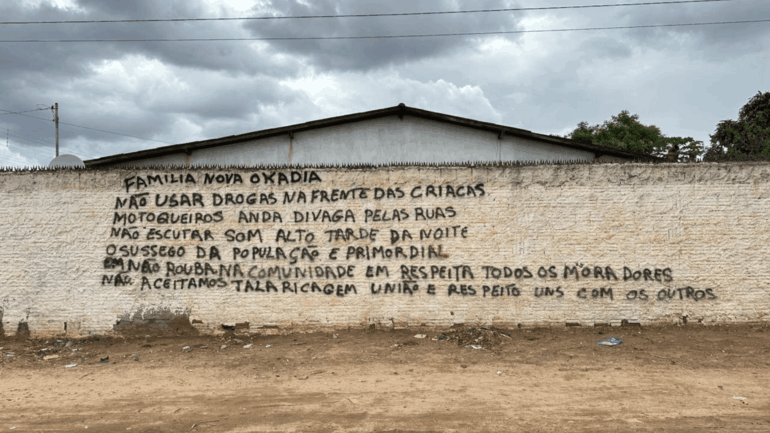 FAMILIA NOVA OKADIA
NÃO USAR DROGAS NA FRENTE DAS CRIAÇAS
MOTOQUEIROS ANDA DIVAGA PELAS RUAS
NÃO ESCUTAR SOM ALTO TARDE DA NOITE
O SUSSEGO DA POPULAÇÃO E PRIMORDIAL
EM NÃO ROUBA NA COMUNIDADE EM RESPEITA TODOS OS MORADORES
NÃO ACEITAMOS TALARICAGEM UNIÃO E RESPEITO UNS COM OS OUTROS